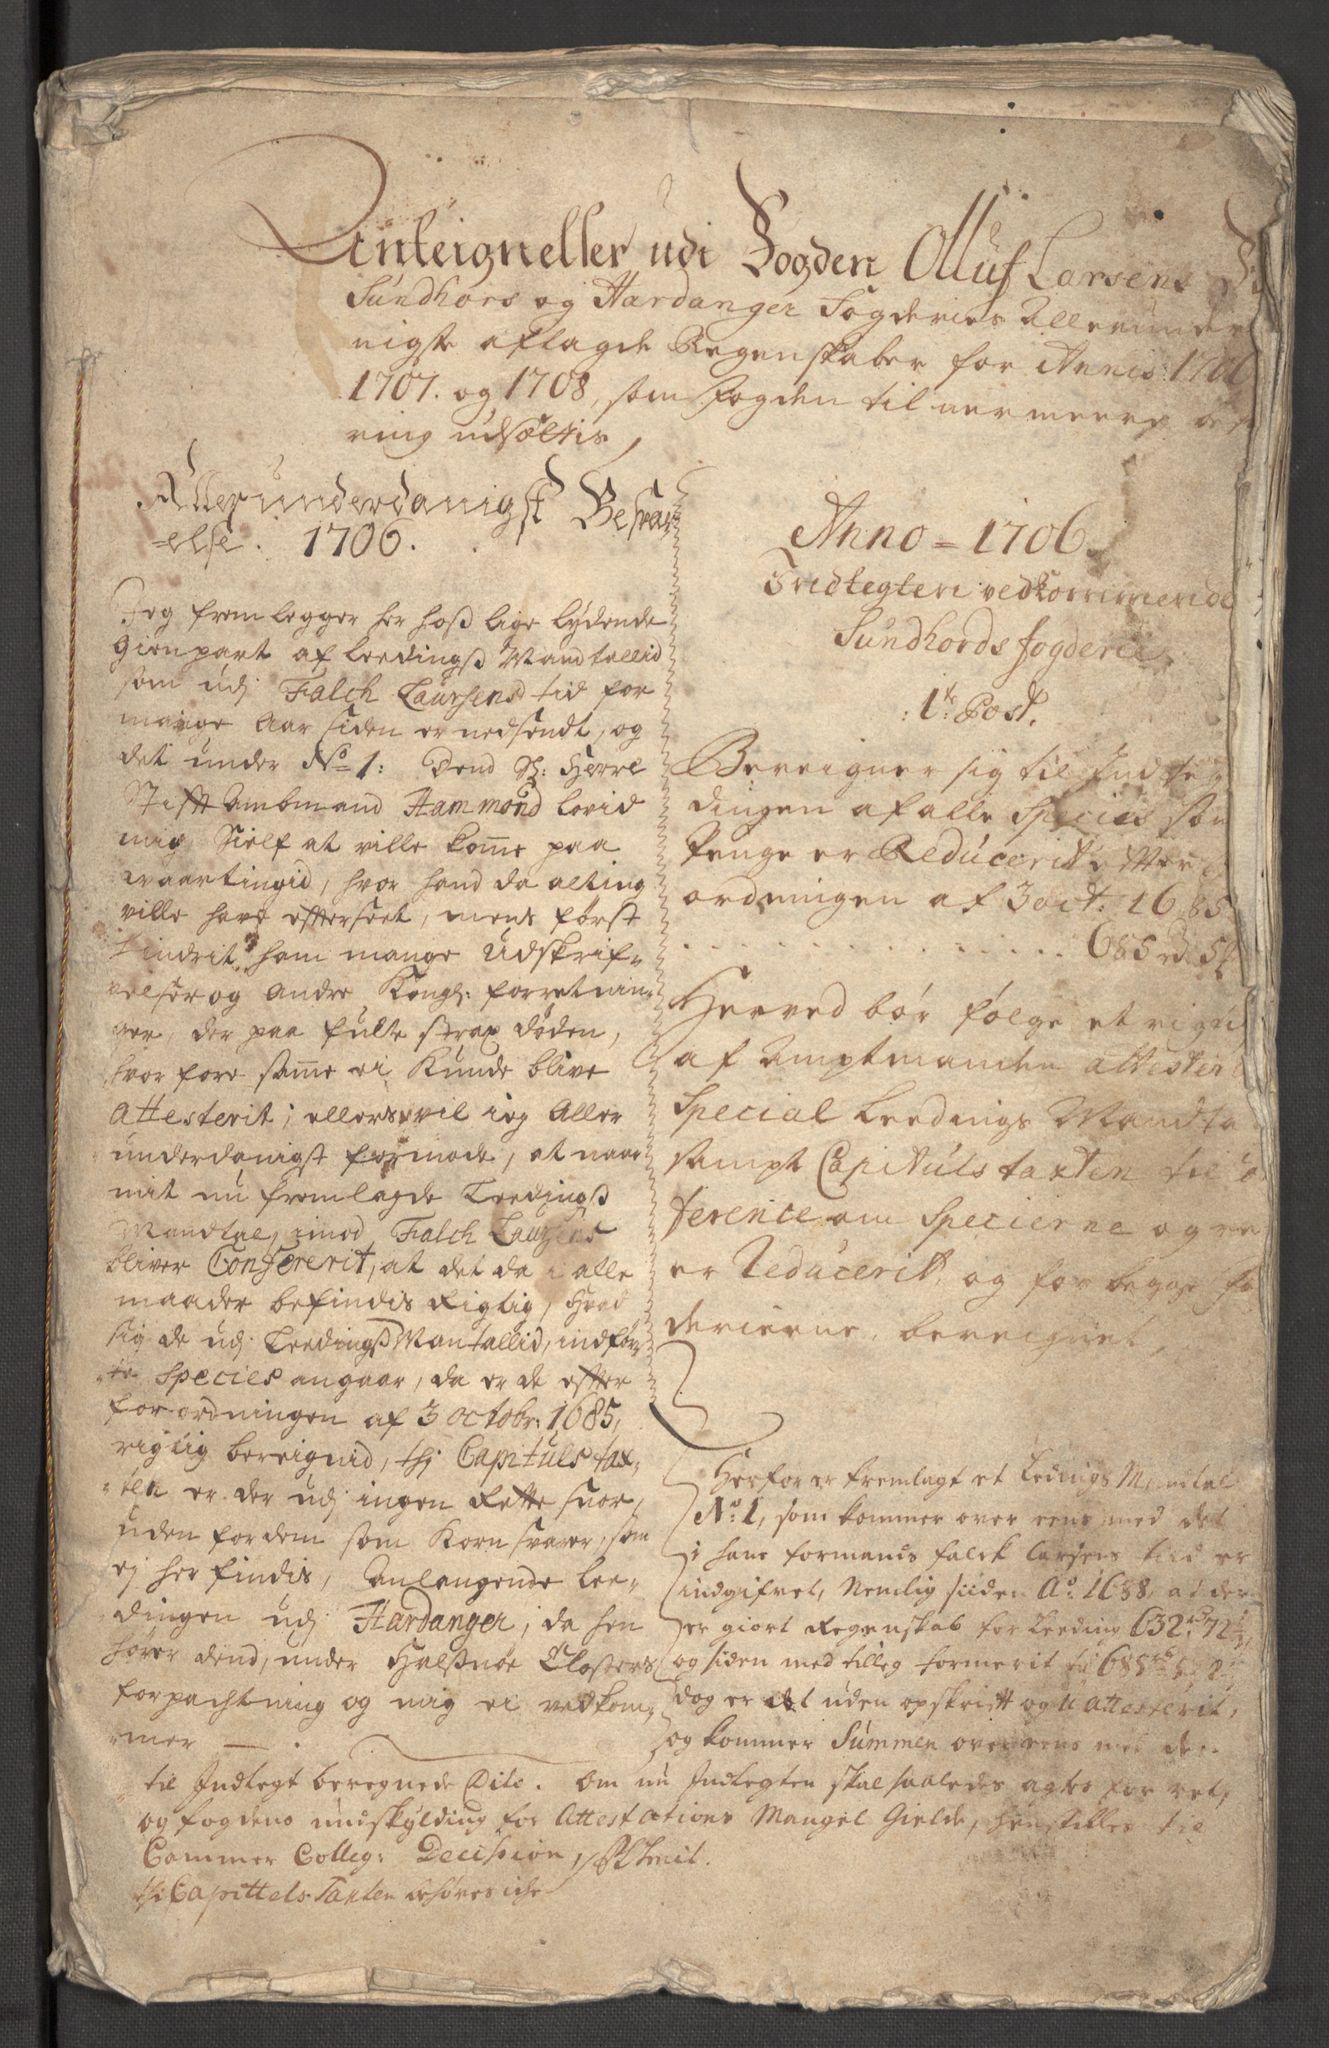 Anteigneller udi Fogden Olluf Larsens
Sundhors og Hardanger Fogderies Allerunder
nigste aflagde Regenskaber for Annis: 1706
1707. og 1708, som Fogden til nermeere
ring udsættis,
Allerunderdanigst Besvar
-else. 1706.
Jeg fremlegger her hoss lige lydende
Gienpart af Leedingss Mandtallid
som udj Falch Laursens tid for
mange Aar siden er nedsendt, og
det under No 1: Dend Sl: Herre
Stifft Ambmand Hammond lovid
mig Sielf at ville komme paa
waartingid, hvor hand da alting
ville have efterseet, mens først
hindrit ham mange Udskrif-
velser og andre Kongl: forretnin-
ger, der paa fulte strax døden,
hvorfore samme ei kunde blive
Attesterit; ellers vil ieg Aller
underdanigst formode, at naar
mit nu fremlagde Leedingss
Mandtal, imod Falch Laursens
bliver Confererit, at det da i alle
maader befindis Rigtig, Hvad
sig de udj Leedingss Mantallid, indfør-
te Species angaar, da er de efter
forordningen af 3 octobr: 1685,
rigtig bereignid, thj Capituls tax-
ten er der udj ingen Rette snor,
uden for dem som Korn svarer, som
ej her findis, Anlangende Lee-
dingen udj Hardanger, da hen
hører dend, under Halssnøe Closters
forpachtning og mig ei vedkom-
mer
Anno = 1706.
Indtegten vedkommende
Sundhords fogderie
1te Post.
Bereigner sig til Indte
dingen af alle Species som
penge er Reducerit effter
ordningen af 3 oct: 1685
685 rd 5
Herved bør følge et rigtig
af Amptmanden attesterit
Special Leedings Mandta
sampt Capituls taxten til
ference om Specierne og re
er Reducerit, og for begge fo
derierne, bereignet,
Herfor er fremlagt et Ledings Mandtal
No. 1, som kommer over eens med det
i hans formands falck Larsens tiid er
indgifvet, Nemlig siiden Ao. 1688, at der
er giort Regenskab for Leeding 632 rd 72
og siden med tilleg formerit til 685 rd
dog er det uden opskrifft og u attesterit,
og kommer Summen overeens med den
til Indtegt beregnede Dito. Om nu Indtegten skal saaledes agtes for ret,
og fogdens undskylding for Attestations Mangel Gielde, henstilles til
Cammer Colleg: Decision,
thi Capittels Taxten behøves iche